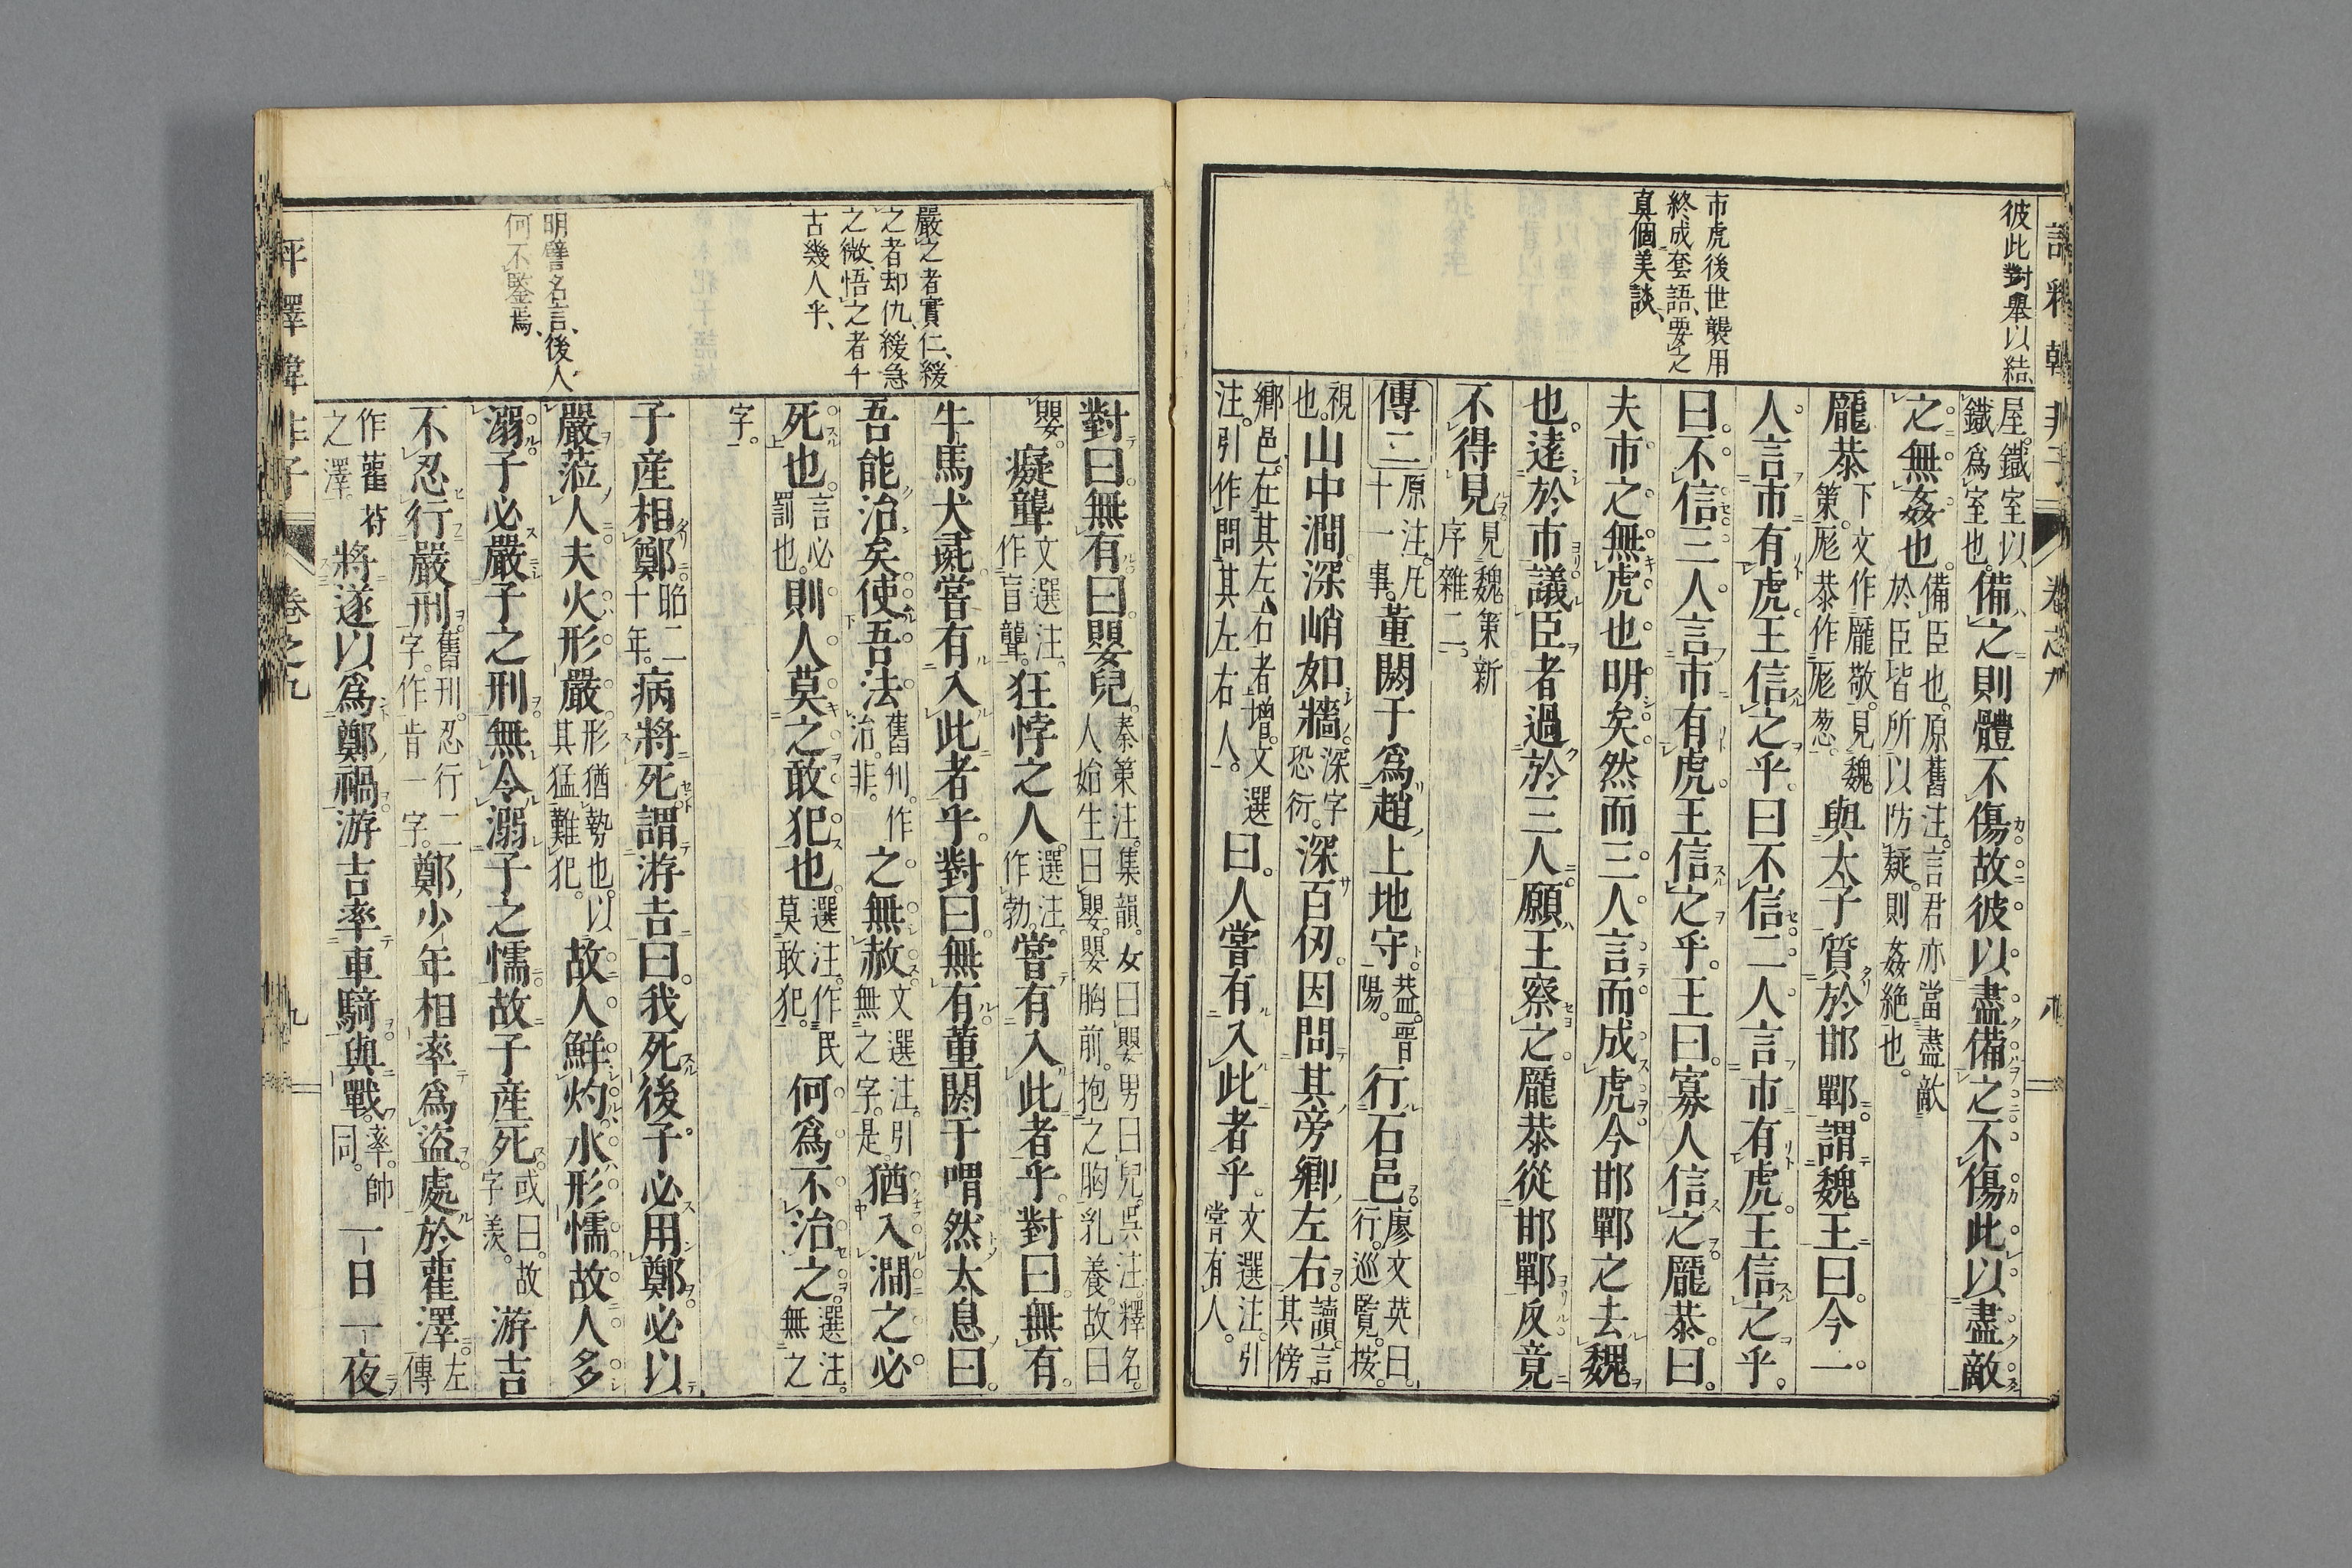 評釋韓非子 卷之九 八
彼此對舉以結、
市虎後世襲用
終成套語、要之
真個美談、
屋。鐵室以鐵爲室也。備之則體不傷故彼以盡備之不傷此以盡敵
之無姦也。備臣也。原舊注。言君亦當盡敵於臣皆所以防疑。則姦絶也。
龐恭下文作龐敬。見魏策。厖恭作厖葱。與太子質於邯鄲。謂魏王曰。今一
人言市有虎。王信之乎。曰不信二人言市有虎。王信之乎。
曰。不信三人言市有虎。王信之乎。王曰。寡人信之龐恭。曰。
夫市之無虎也明矣然而三人言而成虎今邯鄲之去魏
也。遠於市議臣者過於三人願王察之龐恭從邯鄲反竟
不得見見魏策新序雜二。
傳二原注。凡十一事。董閼于爲趙上地守。葢。晋陽。行石邑。廖文英曰。行。巡覽。按。
視也。山中澗深峭如牆深字恐衍。深百仞。因問其旁鄉左右。讀。言其傍
鄉邑。在其左右者。增。文選注。引作問其左右人。曰。人嘗有入此者乎。文選注。引嘗有人。
嚴之者實仁、緩
之者却仇、緩急
之微、悟之者千
古幾人乎、
明譬名言、後人
何不鑒焉、
對曰。無有。曰嬰兒。秦策注。集韻。女曰嬰男曰兒。呉注。釋名。人始生曰嬰。嬰胸前。抱之胸乳養。故曰
嬰。癡聾文選注。作盲聾。狂悖之人。選注。作勃。嘗有入此者乎。對曰。無有。
牛馬犬彘嘗有入此者乎。對曰。無有。董閼于喟然太息曰。
吾能治矣使吾法舊刋。作治。非。之無赦文選注。引無之字。是。猶入澗之必
死也。言必罰也。則人莫之敢犯也。選注。作民莫敢犯。何爲不治之。選注。無之
字。
子産相鄭。昭二十年。病將死。謂游吉曰。我死後子。必用鄭必以
嚴莅人夫火形嚴形猶勢也。以其猛難犯。故人鮮灼。水形懦故人多
溺子必嚴子之刑無令溺子之懦故子産死或曰。故字羨。游吉
不忍行嚴刑。舊刑。忍行二字。作肯一字。鄭少年相率爲盜處於雚澤。左傳
作雚苻之澤。將遂以爲鄭禍。游吉率車騎與戰。率。帥同。一日一夜
評釋韓非子 卷之九 九